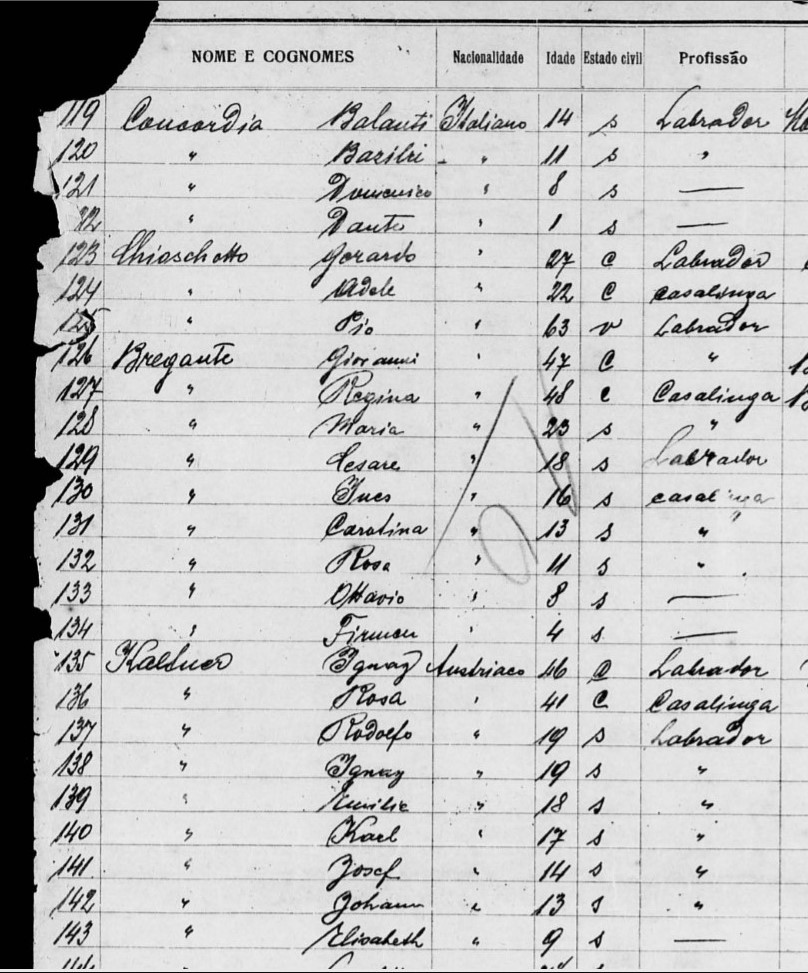 NOME E COGNOMES Nacionalidade Idade Estado civil Profissão
119 Concordia Balanti Italiano 14 s Labrador
120 " " 11 s "
121 " Domenico " 8 s —
22 " Dante " 1 s —
123 Chiaschetto Gerardo " 27 C Labrador
124 " Adele " 22 C casalinga
125 " Pio " 63 v Labrador
126 Bregante Giovanni " 47 C "
127 " Regina " 48 c Casalinga
128 " Maria " 23 s "
129 " Cesare " 18 s Labrador
130 " Ines " 16 s casalinga
131 " Carolina " 13 s "
132 " Rosa " 11 s "
133 " Ottavio " 8 s —
134 " " 4 s —
135 Kaltner Ignaz Austriaco 46 C Labrador
136 " Rosa " 41 C Casalinga
137 " Rodolfo " 19 s Labrador
138 " Ignaz " 19 s "
139 " Emilie " 18 s "
140 " Karl " 17 s "
141 " Josef " 14 s "
142 " Johann " 13 s "
143 " Elisabeth " 9 s —